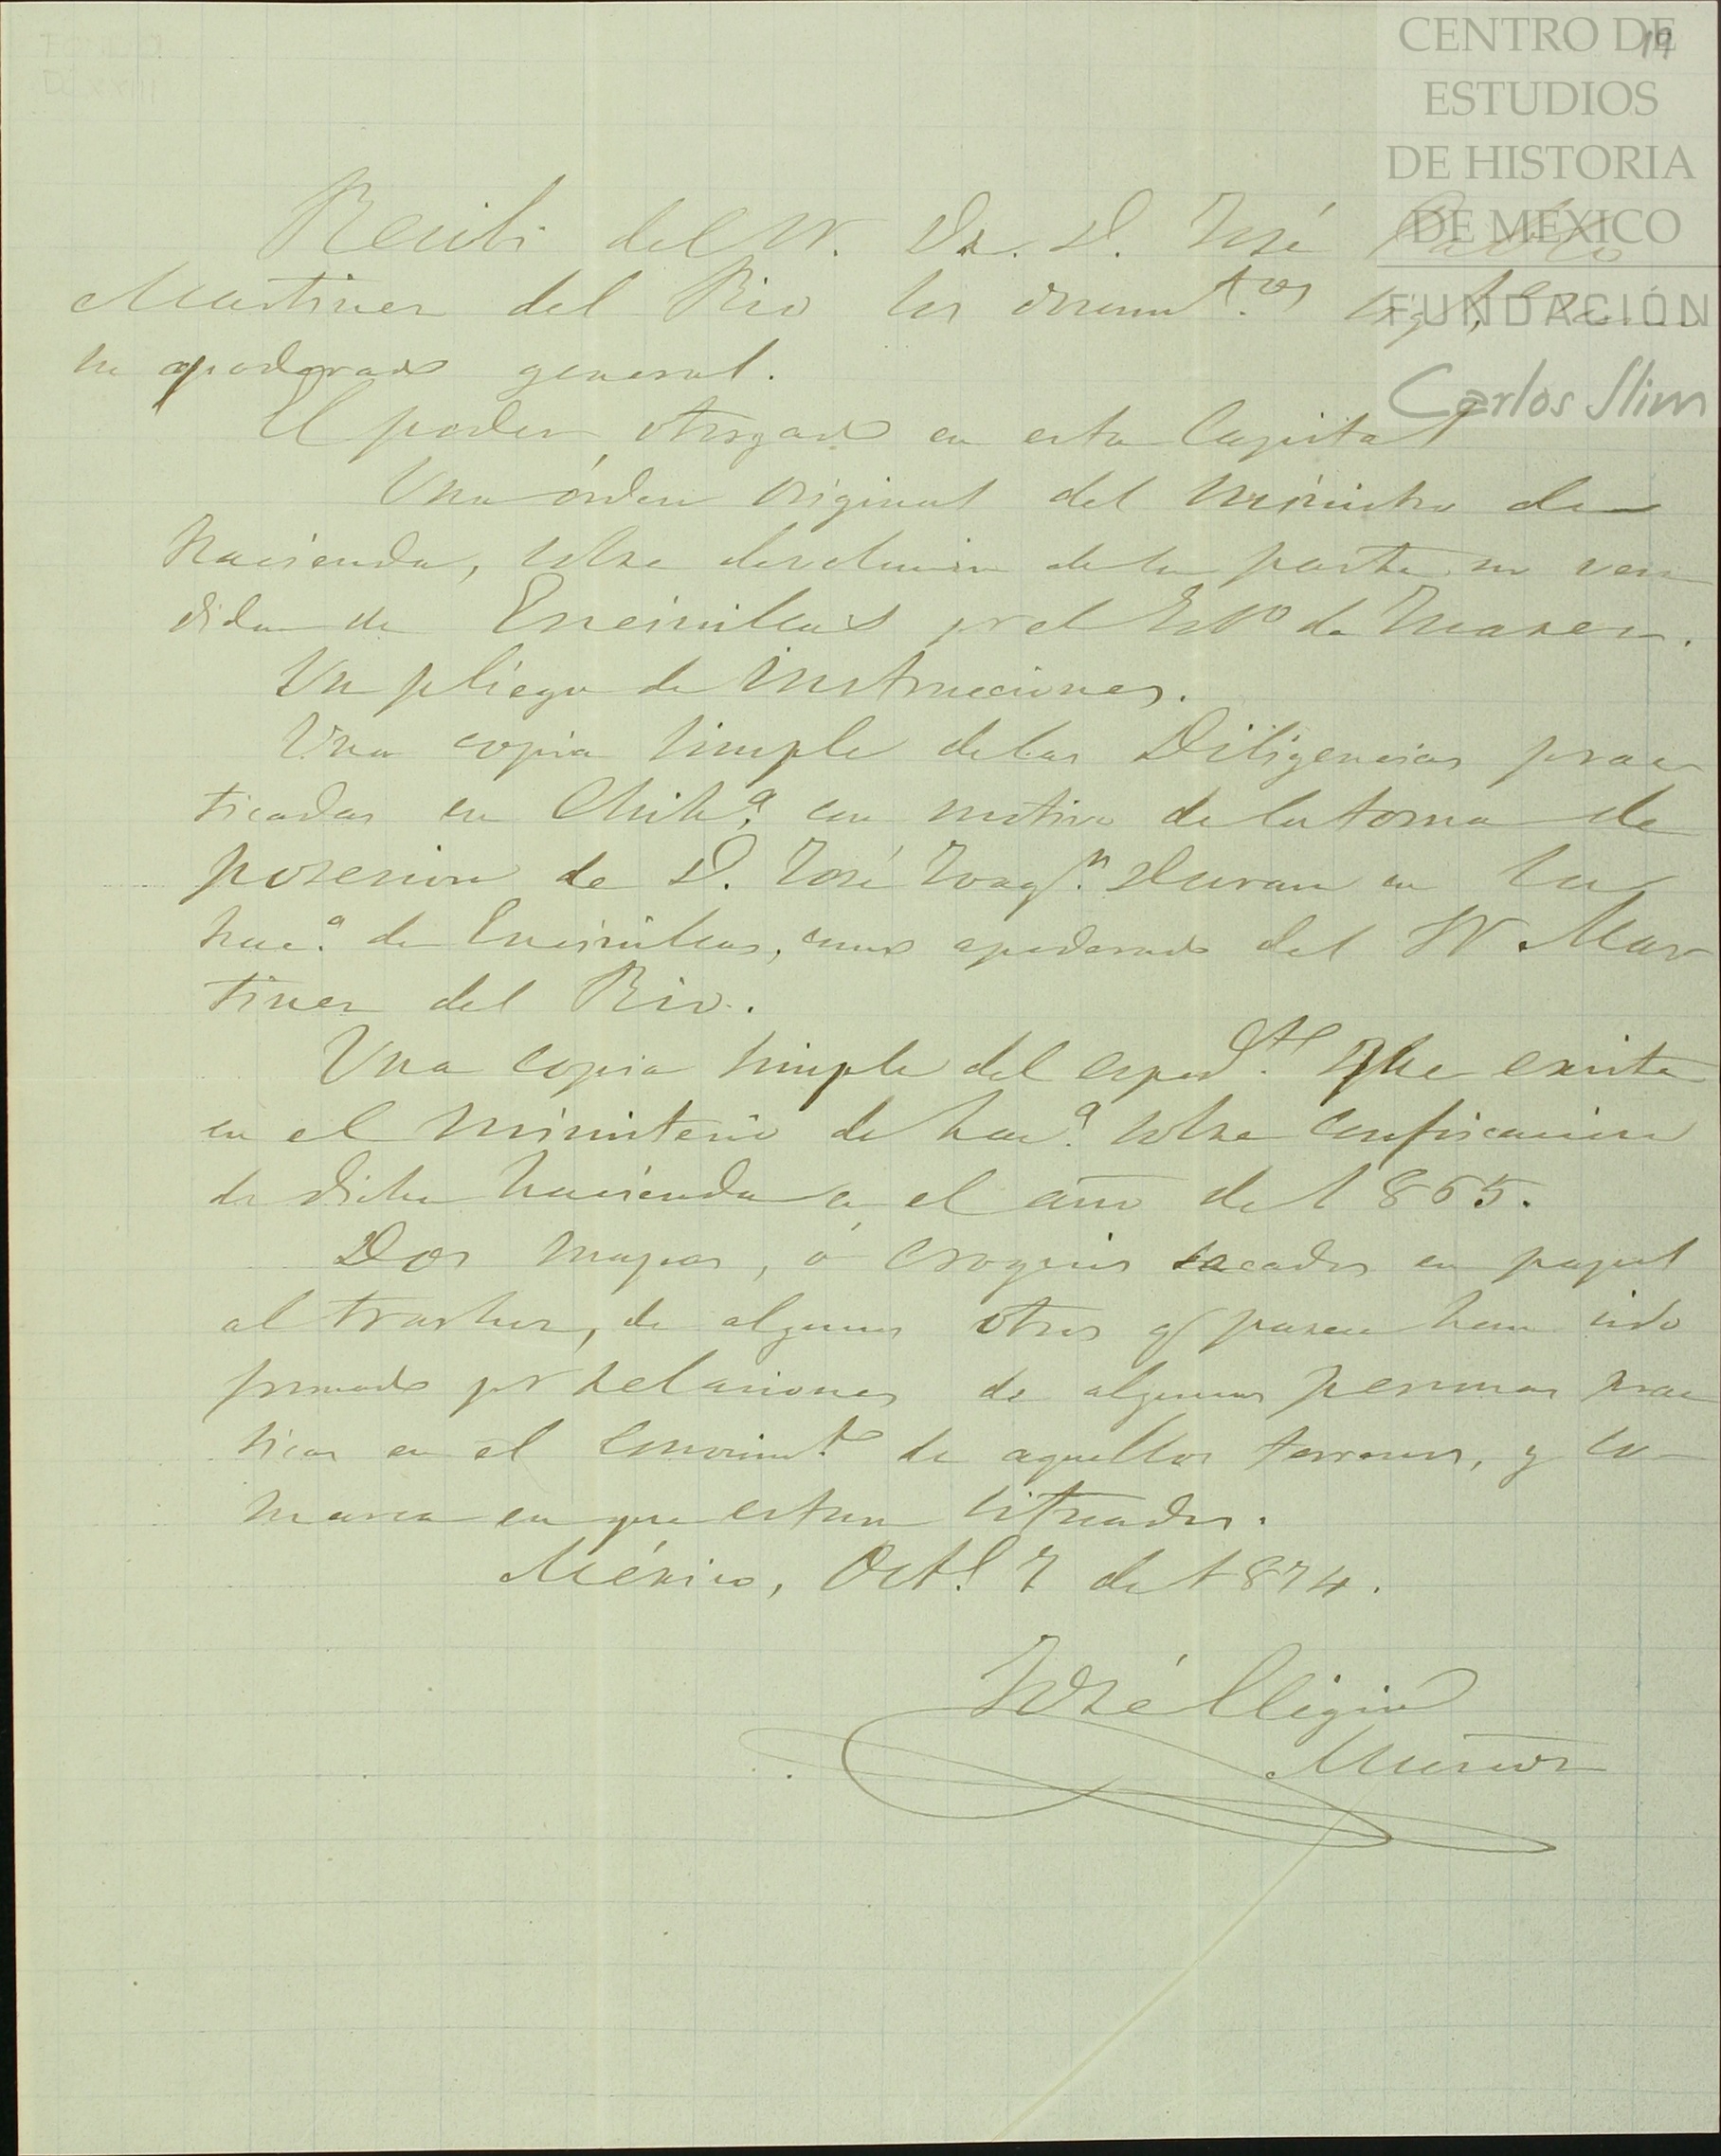 19
CENTRO DE
ESTUDIOS
DE HISTORIA
DE MÉXICO
FUNDACIÓN
Carlos Slim
Recibi del Sr. Dr. D. José Pablo
Martinez del Rio los documtos. sigtes.
su apoderado general.
El poder otorgado en esta Capital
Una órden original del Ministro de
hacienda, sobre devolucion de la parte no ven
dida de Encinillas pr el Estº de Juarez.
Un pliego de instrucciones.
Una copia simple de las Diligencias prac
ticadas en Chiha. con motivo de la toma de
posesion de D. José Joaqn. Duran en la
haca. de Encinillas, como apoderado del Sr Mar
tinez del Rio.
Una copia simple del espedte. que existe
en el Ministerio de haca. sobre confiscacion
de dicha hacienda en el año de 1865.
Dos mapas, ó croquis sacados en papel
al trasluz, de algunos otros q parece han sido
formado pr relaciones de algunas personas prac
ticas en el conocimto. de aquellos terrenos, y co-
marca en que estan situados.
México, Octe. 7 de 1874.
José Eligio
Muñoz